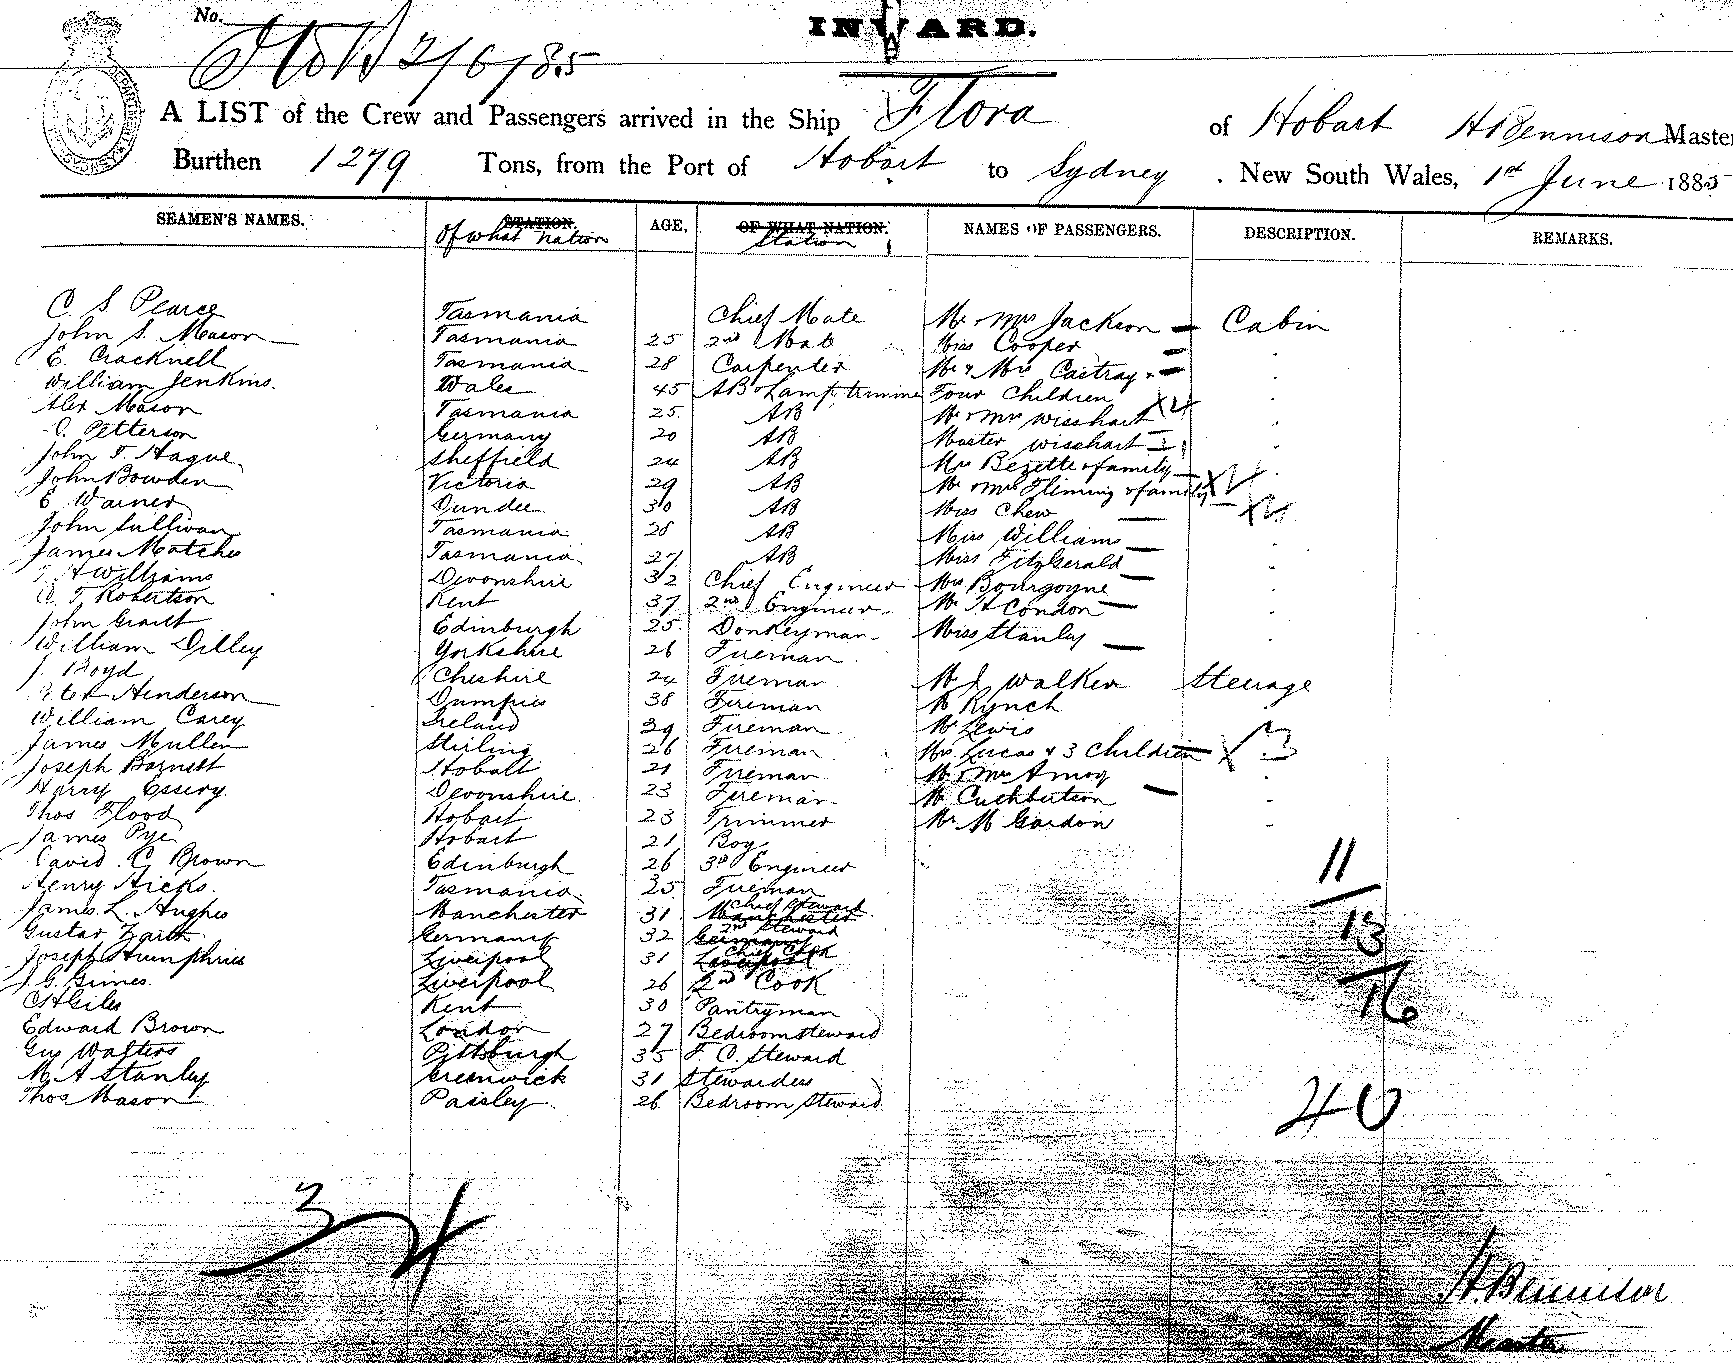 No.
2/6/85
INWARD.
A LIST of the Crew and Passengers arrived in the Ship Flora of Hobart H Bennison Master
Burthen 1279 Tons, from the Port of Hobart to Sydney . New South Wales, 1st June 1885
SEAMEN'S NAMES. STATION. Of what Nation AGE. OF WHAT NATION. Station NAMES OF PASSENGERS. DESCRIPTION. REMARKS.
C S Pearce Tasmania Chief Mate Mr & Mrs Jackson Cabin
John S. Mason Tasmania 25 2nd Mate Miss Cooper
E. Cracknell Tasmania 28 Carpenter Mr & Mrs Castray
William Jenkins. Wales 45 AB & Lamp trimmer Four Children
Alex Mason Tasmania 25 AB Mr & Mrs Wisshart X4
C. Petterson Germany 20 AB Master Wisehart
John T. Hague Sheffield 24 AB Mrs Bezette & family
John Bowden Victoria 29 AB Mr & Mrs Fliming & family
E Warner Dundee 30 AB Miss Chew
John Sullivan Tasmania 28 AB Miss Williams
James Matches Tasmania 27 AB Miss FitzGerald
Williams Devonshire 32 Chief Engineer Mrs Bourgogne
C. T. Robertson Kent 37 2nd Engineer Mr H Condon
John Grant Edinburgh 25 Donkeyman Miss Stanley
William Dilley Yorkshire 26 Fireman
J. Boyd Cheshire 24 Fireman Mr J Walker Steerage
Henderson Dumfries 38 Fireman Mr Rynch
William Carey Ireland 29 Fireman Mr Lewis
James Mullen Stirling 26 Fireman Mrs Lucas & 3 Children X 3
Joseph Barnett Hobart 21 Fireman Mr & Mrs Amog
Harry Essery Devonshire 23 Fireman Mr Cuthbertson
Thos Flood Hobart 23 Trimmer Mr M Gardon
James Pye Hobart 21 Boy
David C. Brown Edinburgh 26 3rd Engineer 11
Henry Hicks. Tasmania 25 Fireman
James L. Hughes Manchester 31 Manchester Chief Steward 13
Gustav Zarth Germany 32 Germany 2nd Steward
Joseph Humphries Liverpool 31 Liverpool Chief Cook
J. G. Grimes Liverpool 26 2nd Cook 16
C H Giles Kent 30 Pantryman
Edward Brown London 27 Bedroom steward
Guy Walters Pittsburgh 35 F. C. Steward
M. A Stanley Greenwick 31 Stewardess
Thos Mason Paisley 26 Bedroom Steward
40
34
H. Bennison
Master